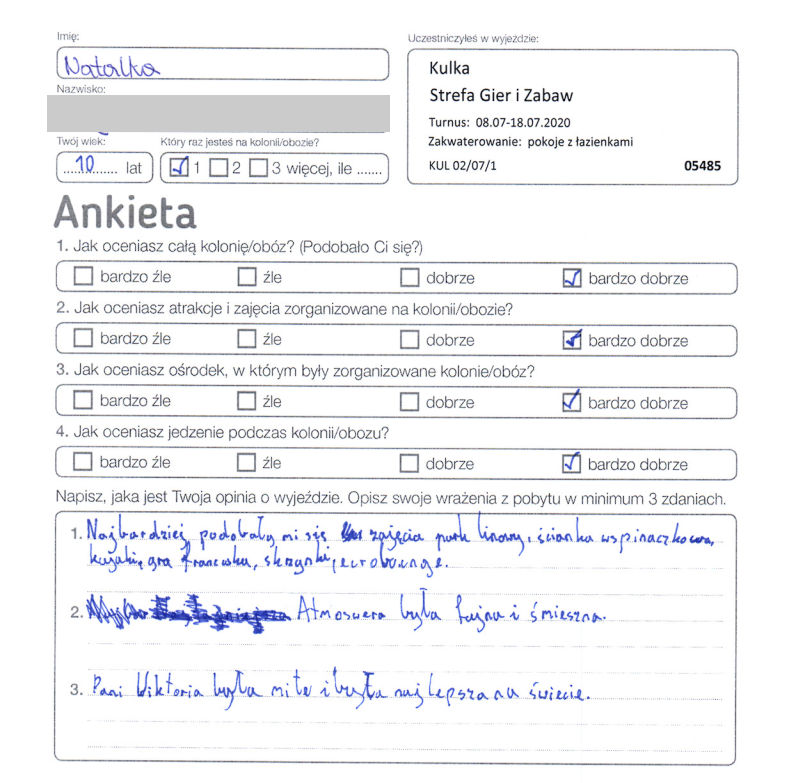 Imię:
Natalka
Nazwisko:
Twój wiek:
10 lat
Który raz jesteś na kolonii/obozie?
1 2 3 więcej, ile .......
Uczestniczyłeś w wyjeździe:
Kulka
Strefa Gier i Zabaw
Turnus: 08.07-18.07.2020
Zakwaterowanie: pokoje z łazienkami
KUL 02/07/1 05485
Ankieta
1. Jak oceniasz całą kolonię/obóz? (Podobało Ci się?)
bardzo źle źle dobrze bardzo dobrze
2. Jak oceniasz atrakcje i zajęcia zorganizowane na kolonii/obozie?
bardzo źle źle dobrze bardzo dobrze
3. Jak oceniasz ośrodek, w którym były zorganizowane kolonie/obóz?
bardzo źle źle dobrze bardzo dobrze
4. Jak oceniasz jedzenie podczas kolonii/obozu?
bardzo źle źle dobrze bardzo dobrze
Napisz, jaka jest Twoja opinia o wyjeździe. Opisz swoje wrażenia z pobytu w minimum 3 zdaniach.
1. Najbardziej podobały mi się zajęcia park linowy, ścianka wspinaczkowa,
kajaki, gra francuska, skrzynki, eurobunge.
2. Atmoswera była fajna i śmieszna.
3. Pani Wiktoria była miła i była najlepsza na świecie.